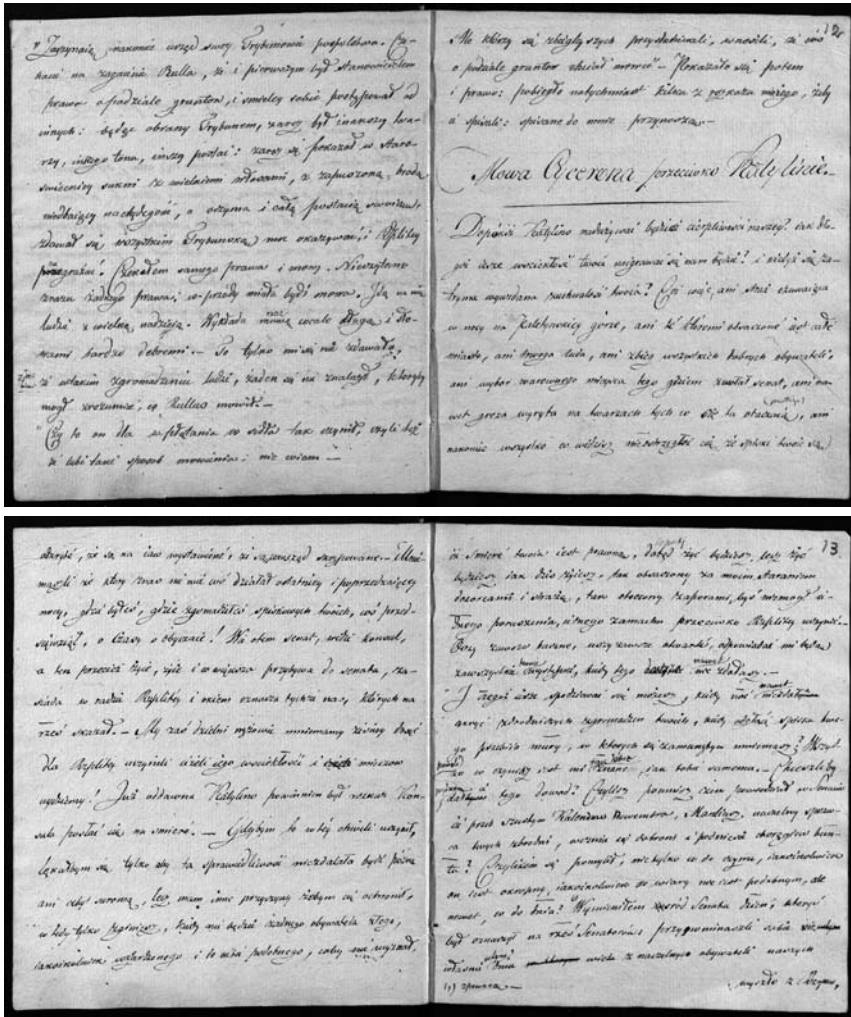 Zaczynaią nakoniec urząd swoy Trybunowie pospolstwa. Cze-
kano na zagaienie Rulla, że i pierwszym był stanowicielem
prawa o podziale gruntow, i smieley sobie postępował od
innych: będąc obrany Trybunem, zaraz był inakszey twa-
rzy, inszego tonu, inszey postaci: zaraz się pokazał w staro-
swieckiey sukni z wielkiemi włosami, z zapuszczoną brodą
a oczyma i całą postacią
zdawał się wszystkim Trybunską moc okazywać, i Rzplitey
Czekałem samego prawa i mowy. Niewzięto
zrazu żadnego prawa; w przody miała bydź mowa. Idą na nią
ludzie z wielką nadzieią. Wykłada mowę wcale długą i sło-
wami bardzo dobremi. — To tylko mi się nie zdawało,
że w takim zgromadzeniu ludzi, żaden się nie znalazł, ktoryby
mogł zrozumieć, co Rullus mowił. —
Czy to on dla w sidła tak czynił, czyli też
że lubi taki sposob mowienia: nie wiem —
12
Ale ktorzy się zbiegły szych przysłuchiwali, wnosili, że on
o podziale gruntow chciał mowić — Pokazało się potem
i prawo: pobiegło natychmiast kilka z rozkazu moiego, żeby
ie spisali: spisane do mnie przynoszą —
Mowa Cycerona przeciwko Katylinie.
Dopókiż Katylino nadużywać będziesz cierpliwości naszey? iak dłu-
goż ieszcze wsciekłość twoia naigrawać się nam będzie? i kiedyż się za-
trzyma wyuzdana zuchwałość twoia? Czyż więc, ani straż czuwaiąca
w nocy na Palatynskiey górze, ani
miasto, ani trwoga ludu, ani zbieg wszystkich dobrych obywateli,
ani wybor warownego mieysca tego gdziem zwołał senat, ani na-
wet groza wyryta na twarzach tych co cię tu otaczaią, ani
nakoniec wszystko co widzisz nieostrzegłoż cię, że spiski twoie są
odkryte, że są na iaw wystawione, że są zewsząd skrępowane. — Mnie-
maszli że ktory z nas nie wie coś działał ostatniey i poprzedzaiącey
nocy, gdzie byłeś, gdzie zgromadziłeś spiskowych twoich, coś przed-
sięwziął, o Czasy o obyczaie! Wie o tem senat, widzi konsul,
a ten przecież żyie, żyie i w większa przybywa do senatu, za-
siada w radzie Rzplitey i okiem oznacza tych z nas, których na
rzeź skazał. — My zaś dzielni mężowie mniemamy żeśmy dosyć
dla Rzplitey uczynili ieżeli iego wsciekłości i mieczow
uydziemy! Już oddawna Katylino powinien był rozkaz Kon-
sula posłać cię na smierć. — Gdybym to w tey chwili uczynił,
lękałbym się tylko aby ta sprawiedliwość niezdalała bydź późna
ani zbyt surową, lecz mam inne przyczyny żebym cię ochronił,
w tedy tylko zginiesz, kiedy nie będzie żadnego obywatela złego,
iakożkolwiek wzgardzonego i to tobie podobnego, coby nie wyznał,
13.
iż smierć twoia iest prawną, dotąd żyć będziesz, lecz żyć
będziesz iak dziś żyiesz, tak otoczony za moiem staraniem
dozorcami i strażą, tak otoczony zaporami, byś niemogł ża-
dnego poruszenia, żadnego zamachu przeciwko Rzplitey uczynić.
Oczy zawsze baczne, uszy zawsze otwarte, odpowiadać mi będą
kiedy tego nawet nie zdołasz. —
I czegoż ieszcze spodziewać się możesz, kiedy noc nawet niezdoła
ukryć zbrodniczych zgromadzeń twoich, kiedy odgłos spisku twe-
go przebiia mury, w ktorych się zamkniętym mniemasz? Wszyst-
ko co czynisz iest mi znane, iak tobie samemu. — Chceszliż
tego dowod? Czyliż pomnisz żem powiedział w senacie
iż przed szostym Kalendow Nowembra, Manliusz, naczelny spraw-
ca twych zbrodni, wezmie się do broni i podniesie chorągiew bun-
tu? Czyliżem się pomylił, nie tylko co do czynu, iakożkolwiek
on iest okropny, iakożkolwiek do wiary nie iest podobnym, ale
nawet, co do dnia? Wymieniłem wśród Senatu dzień, ktoryś
był oznaczył na rzeź Senatorow: przypominaszli sobie
własnie dnia wielu z naczelnych obywateli naszych
(1) sprawca. —
wyszło z Rzymu,